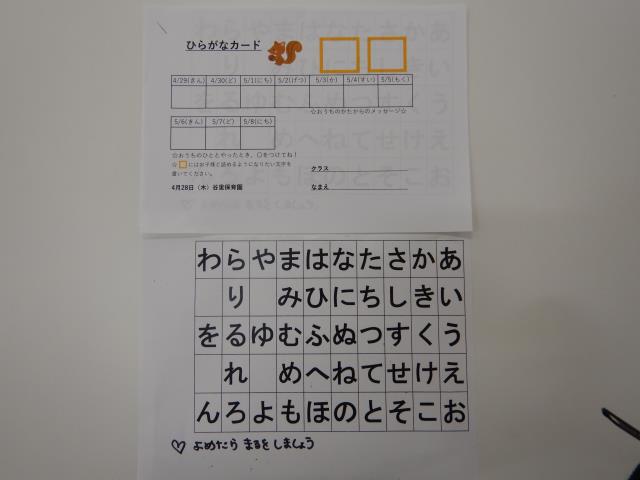 ひらがなカード
4/29(きん) 4/30(ど) 5/1(にち) 5/2(げつ) 5/3(か) 5/4(すい) 5/5(もく)
☆おうちのかたからのメッセージ☆
5/6(きん) 5/7(ど) 5/8(にち)
☆おうちのひととやったとき、○をつけてね！
☆□にはお子様と読めるようになりたい文字を
書いてください。
クラス
4月28日（木）谷里保育園
なまえ
わ ら や ま は な た さ か あ
り み ひ に ち し き い
を る ゆ む ふ ぬ つ す く う
れ め へ ね て せ け え
ん ろ よ も ほ の と そ こ お
♡ よめたら まるを しましょう